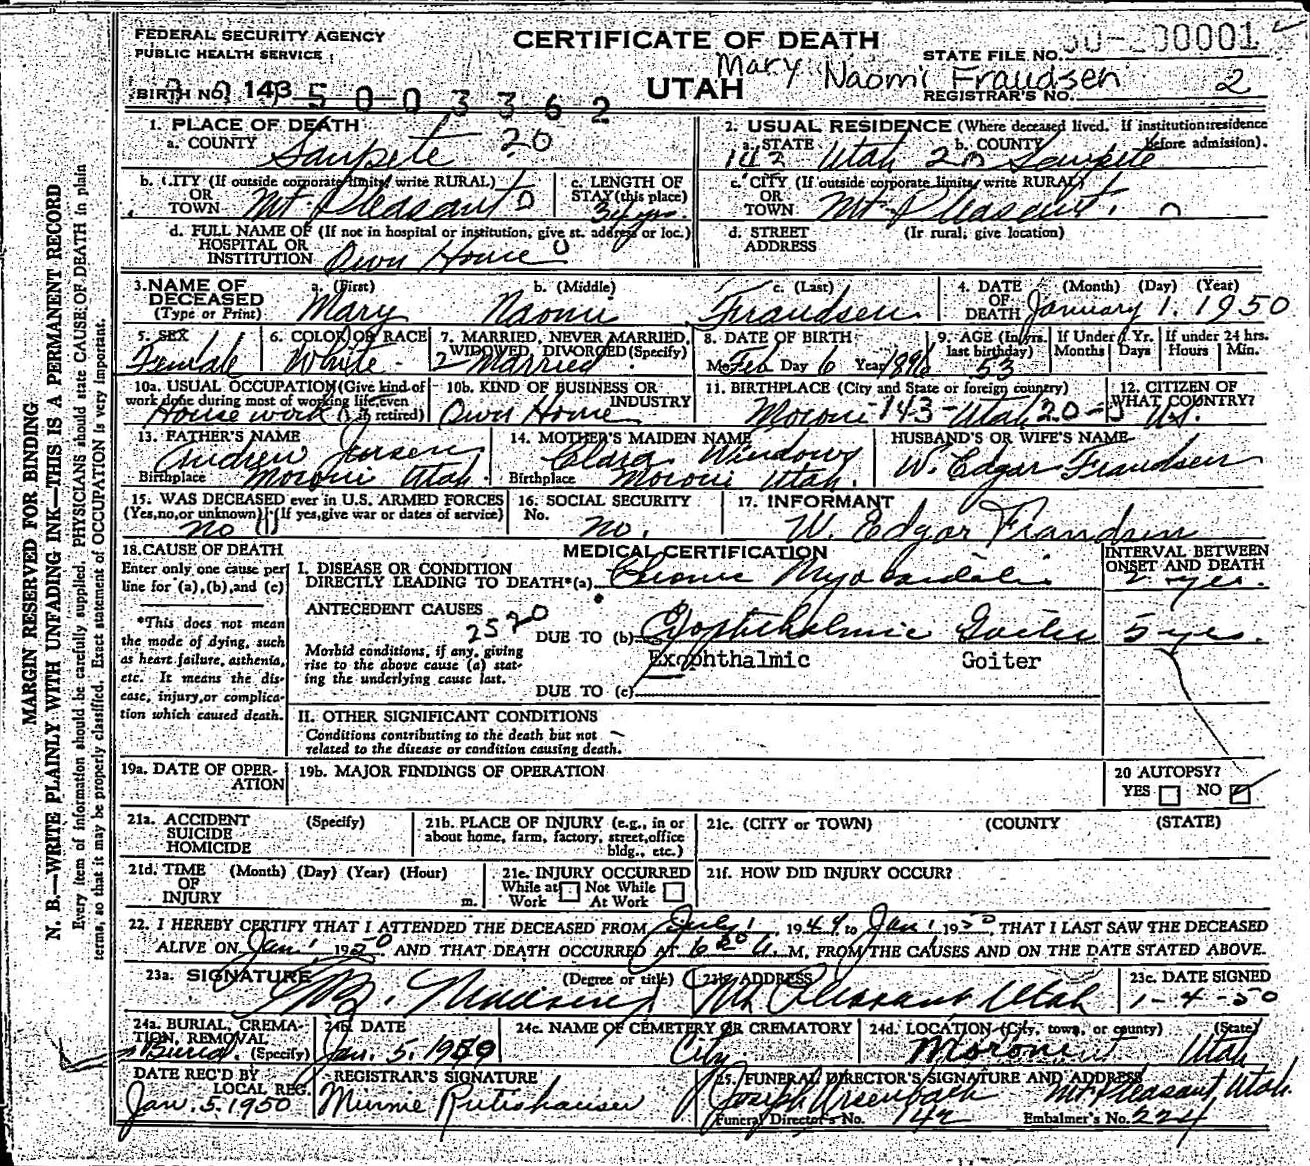 FEDERAL SECURITY AGENCY
PUBLIC HEALTH SERVICE
CERTIFICATE OF DEATH
STATE FILE NO. 50-200001
Mary Naomi Frandsen
UTAH
REGISTRAR'S NO. 2
BIRTH NO. 143 5 0 0 3 3 6 2
1. PLACE OF DEATH
a. COUNTY Sanpete 20
2. USUAL RESIDENCE (Where deceased lived. If institution: residence before admission).
a. STATE 142 Utah b. COUNTY Sanpete
b. CITY (If outside corporate limits, write RURAL) OR TOWN Mt. Pleasant 0
c. LENGTH OF STAY (this place) 34 yrs
c. CITY (If outside corporate limits, write RURAL) OR TOWN Mt. Pleasant. 0
d. FULL NAME OF (If not in hospital or institution, give st. address or loc.) HOSPITAL OR INSTITUTION Own Home 0
d. STREET ADDRESS (If rural, give location)
3. NAME OF DECEASED (Type or Print)
a. (First) Mary b. (Middle) Naomi c. (Last) Frandsen
4. DATE OF DEATH (Month) (Day) (Year) January 1. 1950
5. SEX Female
6. COLOR OR RACE White
7. MARRIED, NEVER MARRIED, WIDOWED, DIVORCED (Specify) 2 Married.
8. DATE OF BIRTH Mo Feb Day 6 Year 1896
9. AGE (In yrs. last birthday) 53
If Under 1 Yr. Months Days
If under 24 hrs. Hours Min.
10a. USUAL OCCUPATION (Give kind of work done during most of working life, even if retired) House work
10b. KIND OF BUSINESS OR INDUSTRY Own Home
11. BIRTHPLACE (City and State or foreign country) Moroni-143-Utah 20-
12. CITIZEN OF WHAT COUNTRY? U.S.
13. FATHER'S NAME Andrew Jensen
Birthplace Moroni Utah.
14. MOTHER'S MAIDEN NAME Clara
Birthplace Moroni Utah.
HUSBAND'S OR WIFE'S NAME W. Edgar Frandsen
15. WAS DECEASED ever in U.S. ARMED FORCES (Yes, no, or unknown) (If yes, give war or dates of service) no
16. SOCIAL SECURITY No. no.
17. INFORMANT W. Edgar Frandsen
18. CAUSE OF DEATH
Enter only one cause per line for (a), (b), and (c)
*This does not mean the mode of dying, such as heart failure, asthenia, etc. It means the disease, injury, or complication which caused death.
MEDICAL CERTIFICATION
INTERVAL BETWEEN ONSET AND DEATH
I. DISEASE OR CONDITION DIRECTLY LEADING TO DEATH* (a) Chronic Myocarditis 2 yrs.
ANTECEDENT CAUSES 2520
Morbid conditions, if any, giving rise to the above cause (a) stating the underlying cause last.
DUE TO (b) Exophthalmic Goiter 5 yrs.
Exophthalmic Goiter
DUE TO (c)
II. OTHER SIGNIFICANT CONDITIONS
Conditions contributing to the death but not related to the disease or condition causing death.
19a. DATE OF OPERATION
19b. MAJOR FINDINGS OF OPERATION
20 AUTOPSY? YES NO
21a. ACCIDENT SUICIDE HOMICIDE (Specify)
21b. PLACE OF INJURY (e.g., in or about home, farm, factory, street, office bldg., etc.)
21c. (CITY or TOWN) (COUNTY (STATE)
21d. TIME OF INJURY (Month) (Day) (Year) (Hour) m.
21e. INJURY OCCURRED While at Work Not While At Work
21f. HOW DID INJURY OCCUR?
22. I HEREBY CERTIFY THAT I ATTENDED THE DECEASED FROM July 1, 1949 to Jan. 1 1950, THAT I LAST SAW THE DECEASED
ALIVE ON Jan 1 1950 AND THAT DEATH OCCURRED AT 6 20 A. M, FROM THE CAUSES AND ON THE DATE STATED ABOVE.
23a. SIGNATURE (Degree or title)
23b. ADDRESS Mt. Pleasant Utah
23c. DATE SIGNED 1-4-50
24a. BURIAL, CREMATION, REMOVAL (Specify) Burial
24b. DATE Jan. 5. 1950
24c. NAME OF CEMETERY OR CREMATORY City
24d. LOCATION (City, town, or county) (State) Moroni Utah
DATE REC'D BY LOCAL REG. Jan. 5. 1950
REGISTRAR'S SIGNATURE Minnie Rutishauser
25. FUNERAL DIRECTOR'S SIGNATURE AND ADDRESS Joseph Ursenbach Mt. Pleasant, Utah
Funeral Director's No. 142 Embalmer's No. 224
MARGIN RESERVED FOR BINDING
N. B.—WRITE PLAINLY WITH UNFADING INK—THIS IS A PERMANENT RECORD
Every item of information should be carefully supplied. PHYSICIANS should state CAUSE OF DEATH in plain
terms, so that it may be properly classified. Exact statement of OCCUPATION is very important.